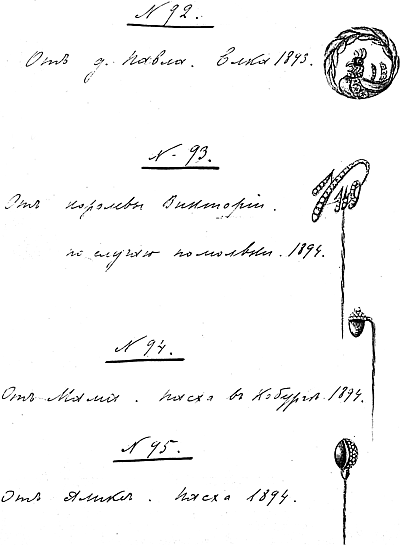 N 92.
Отъ д. Павла. Елка 1893.
N. 93.
Отъ королевы Викторіи.
по случаю помолвки. 1894.
N 94.
Отъ Мама. Пасха въ Кобургѣ 1894.
N 95.
Отъ Аликсъ. Пасха 1894.